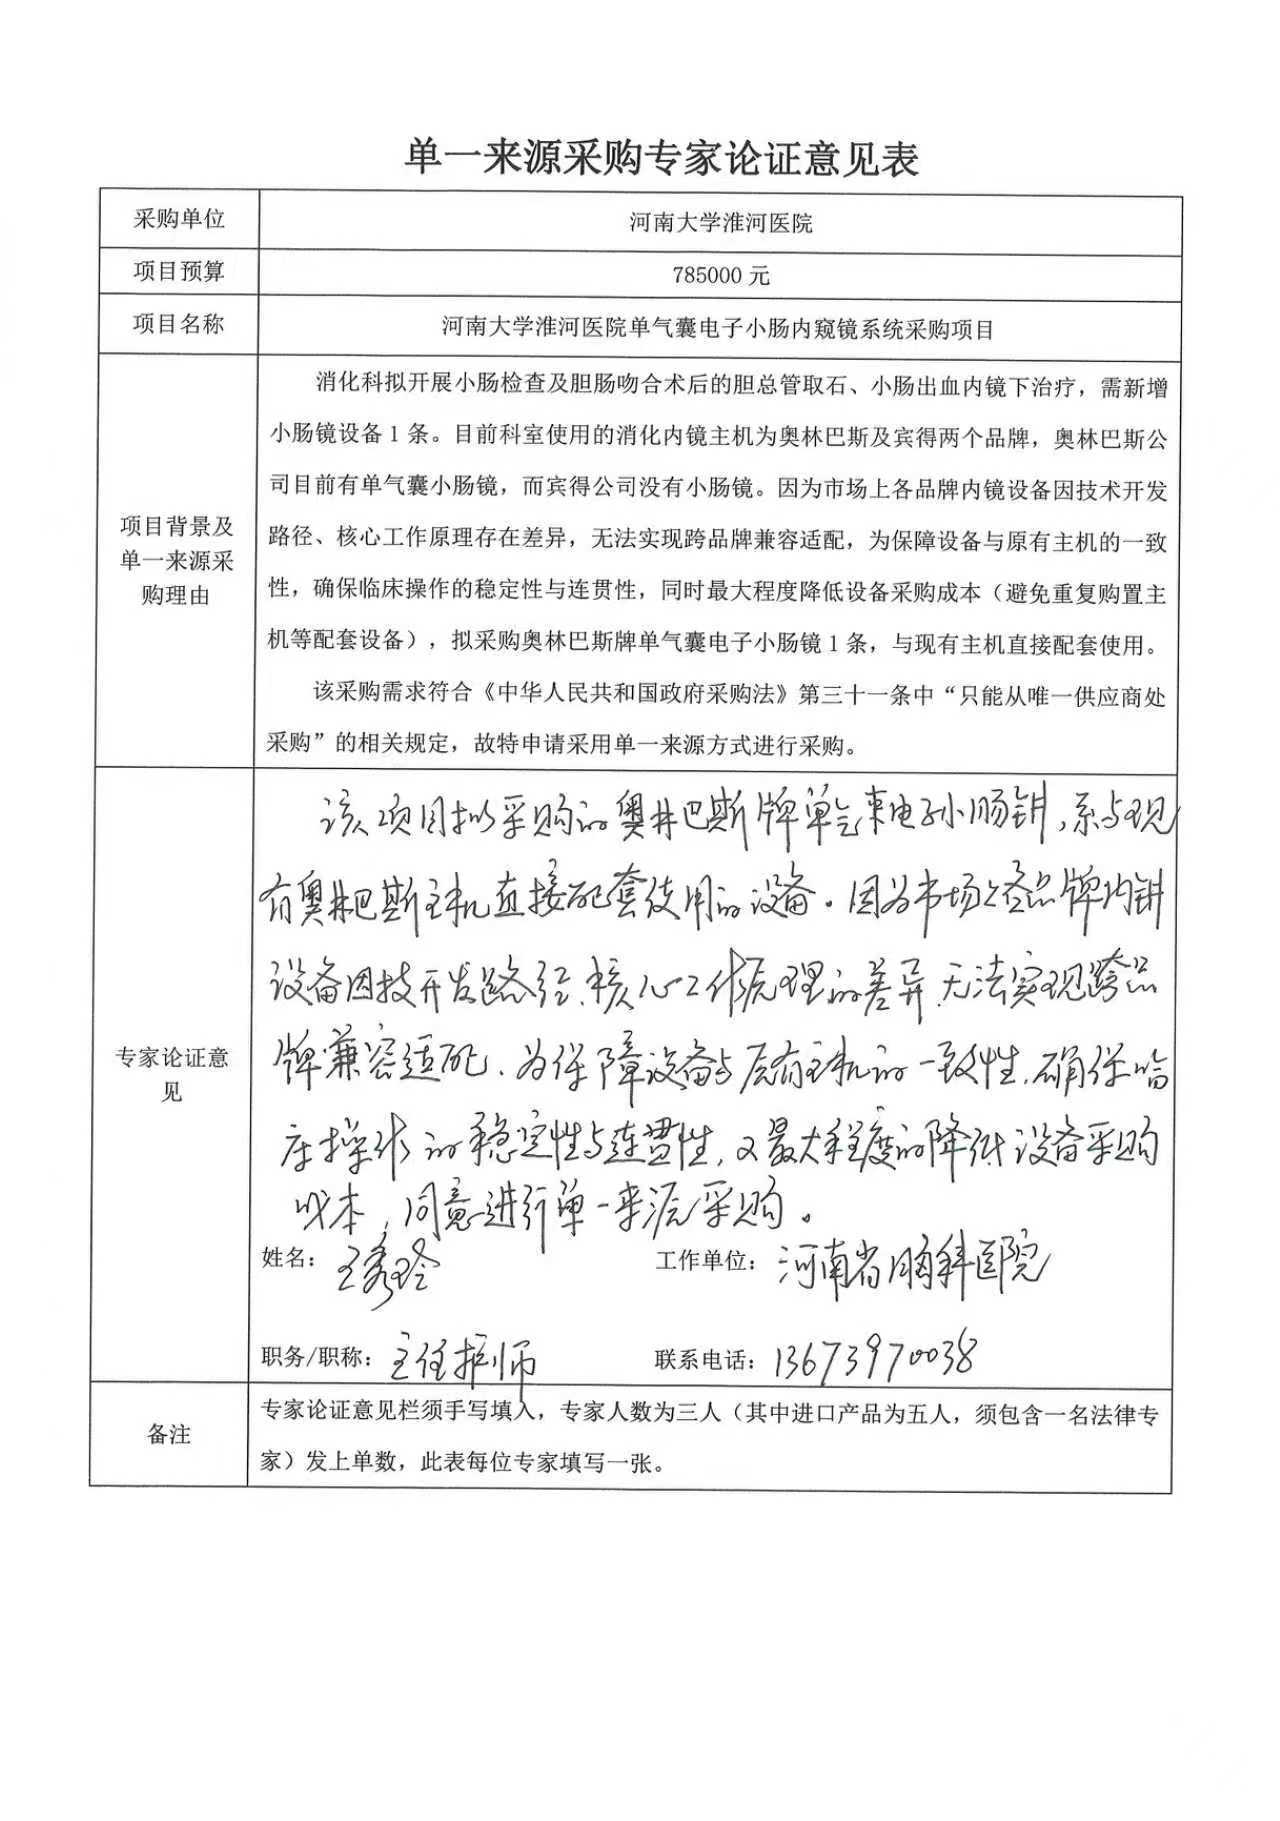 单一来源采购专家论证意见表
采购单位
河南大学淮河医院
项目预算
785000 元
项目名称
河南大学淮河医院单气囊电子小肠内窥镜系统采购项目
项目背景及
单一来源采
购理由
消化科拟开展小肠检查及胆肠吻合术后的胆总管取石、小肠出血内镜下治疗，需新增
小肠镜设备 1 条。目前科室使用的消化内镜主机为奥林巴斯及宾得两个品牌，奥林巴斯公
司目前有单气囊小肠镜，而宾得公司没有小肠镜。因为市场上各品牌内镜设备因技术开发
路径、核心工作原理存在差异，无法实现跨品牌兼容适配，为保障设备与原有主机的一致
性，确保临床操作的稳定性与连贯性，同时最大程度降低设备采购成本（避免重复购置主
机等配套设备），拟采购奥林巴斯牌单气囊电子小肠镜 1 条，与现有主机直接配套使用。
该采购需求符合《中华人民共和国政府采购法》第三十一条中“只能从唯一供应商处
采购”的相关规定，故特申请采用单一来源方式进行采购。
专家论证意
见
该项目拟采购的奥林巴斯牌单气囊电子小肠镜，系与现
有奥林巴斯主机直接配套使用的设备。因为市场上各品牌内镜
设备因技开发路径、核心工作原理的差异，无法实现跨品
牌兼容适配、为保障设备与原有主机的一致性，确保临
床操作的稳定性与连贯性，又最大程度的降低设备采购
成本，同意进行单一来源采购。
姓名： 王秀玲 工作单位： 河南省胸科医院
职务/职称： 主任护师 联系电话： 13673970038
备注
专家论证意见栏须手写填入，专家人数为三人（其中进口产品为五人，须包含一名法律专
家）发上单数，此表每位专家填写一张。